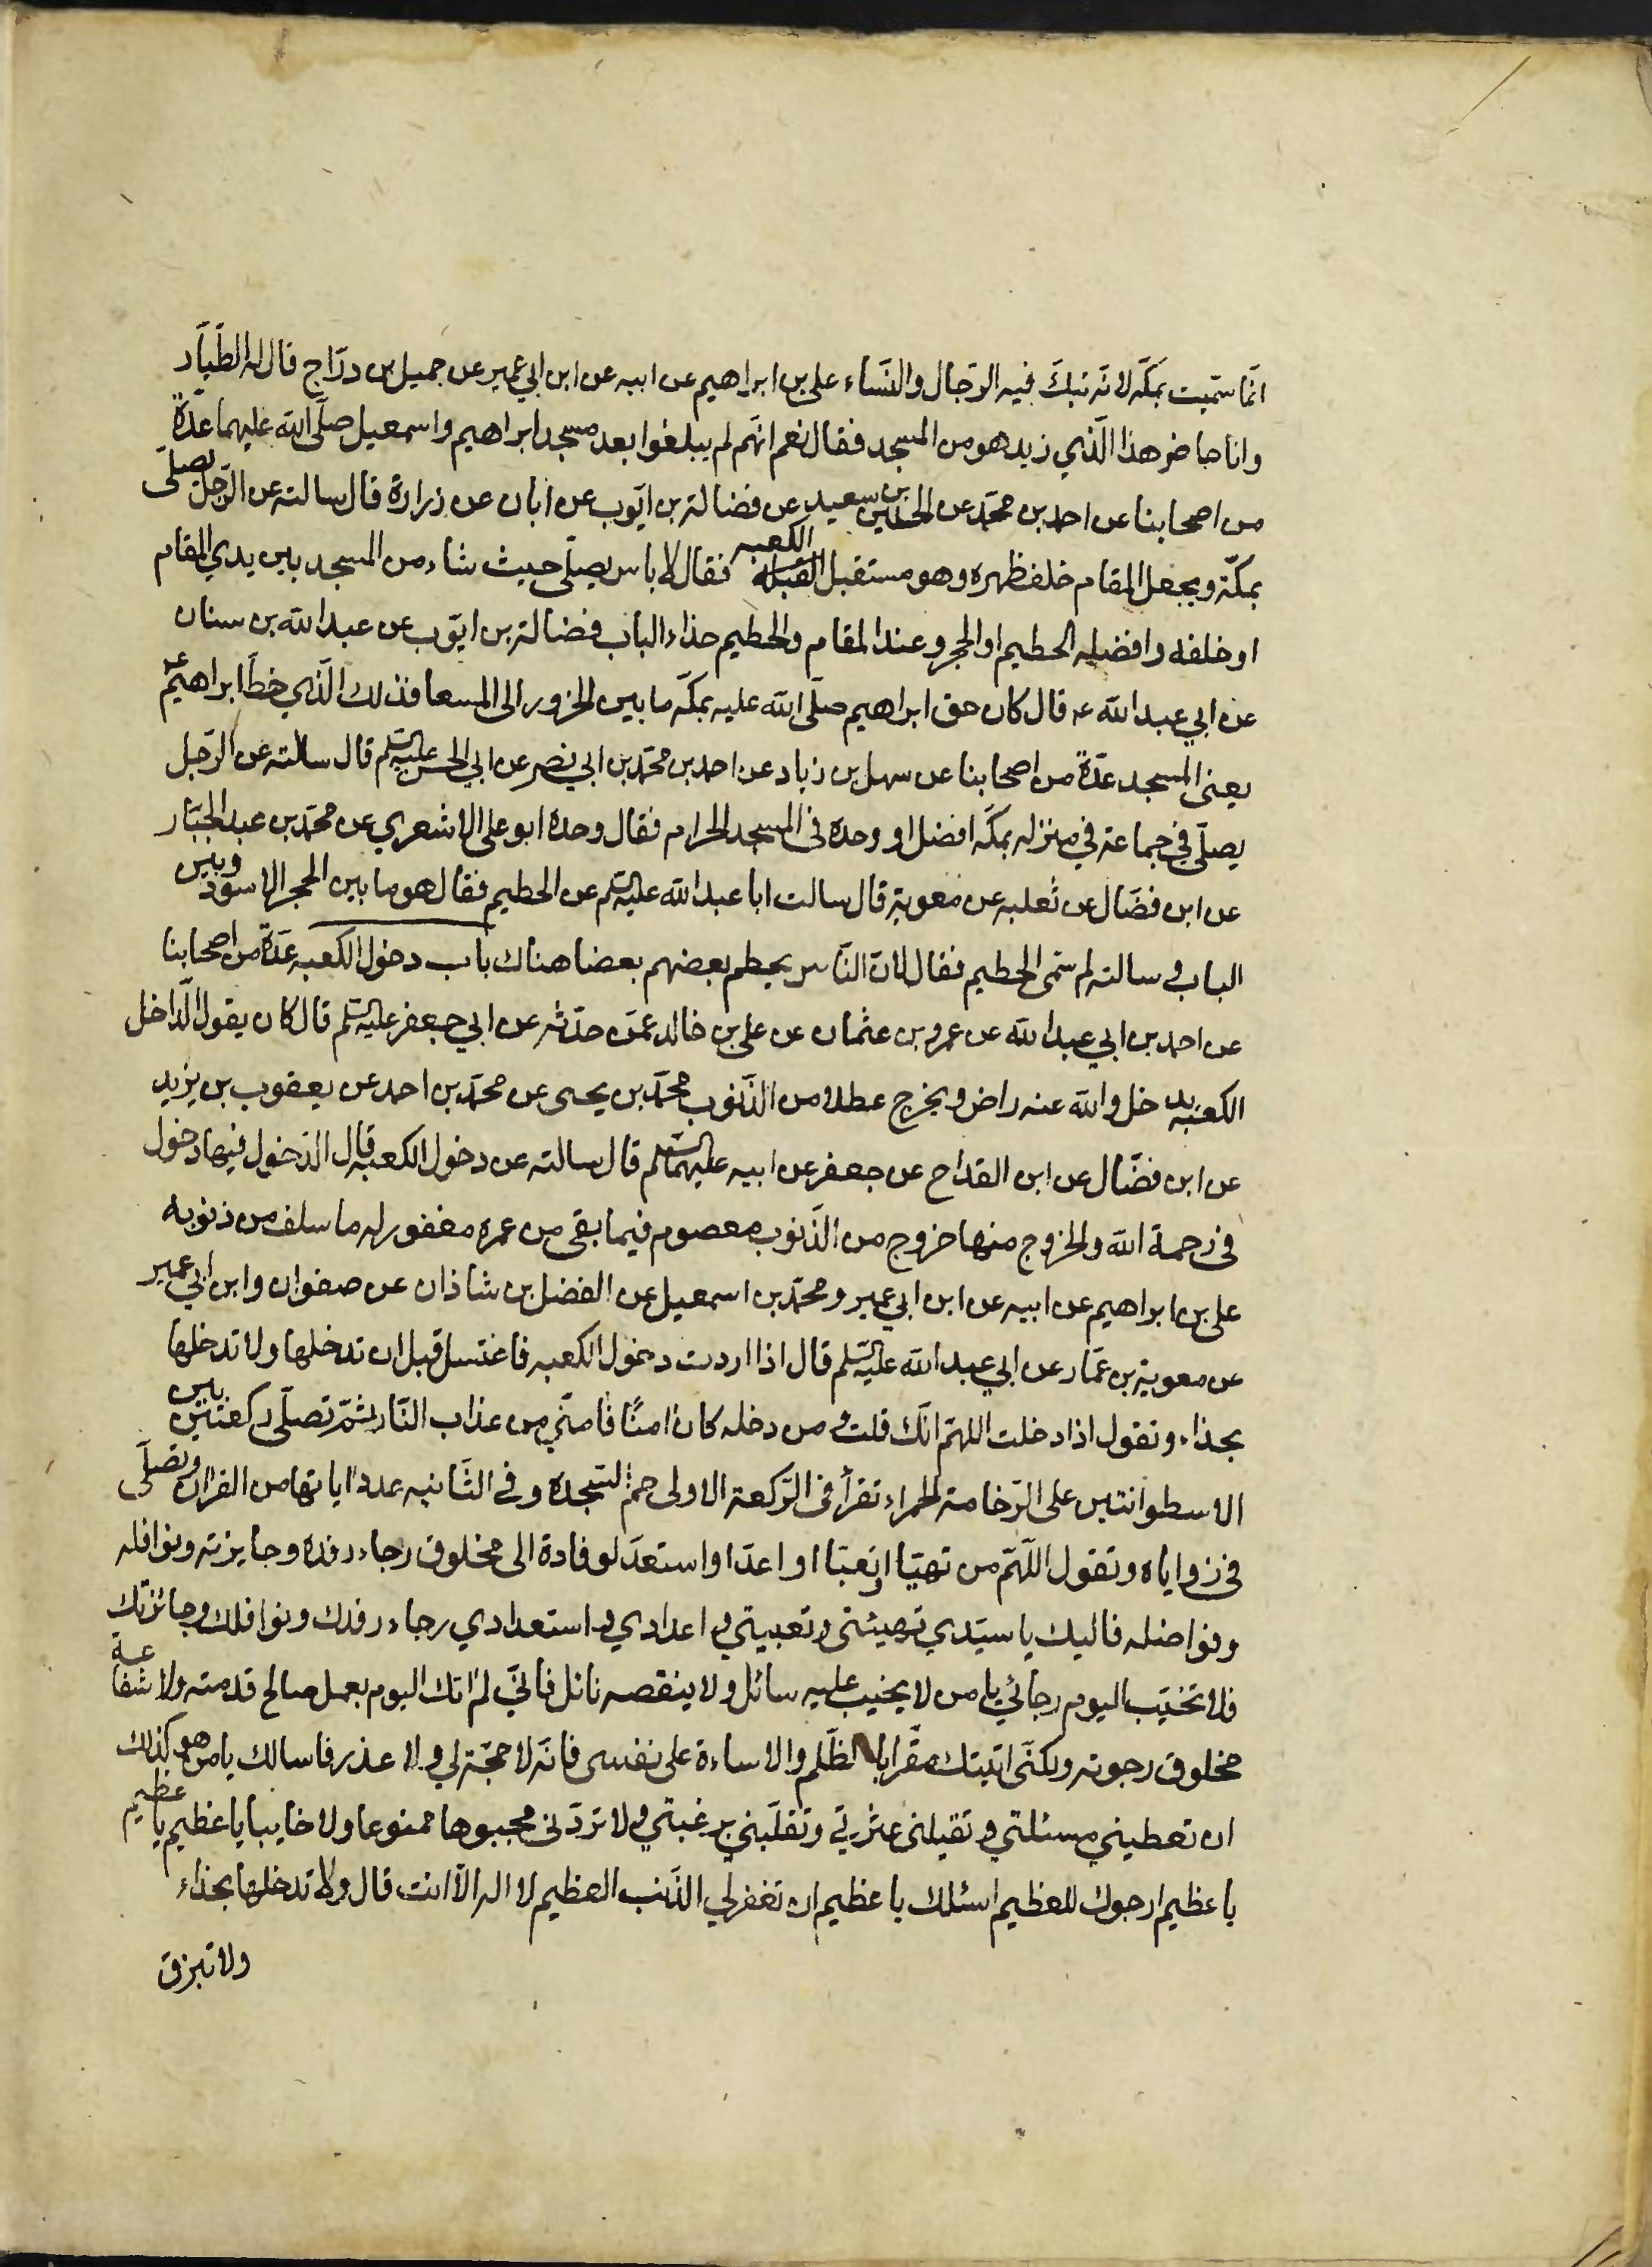 انّما سمّيت بمكّه لانّه تبكّ فيه الرّجال والنّساء على بن ابراهيم عن ابيه عن ابن ابي عمير عن جميل بن درّاج قال له الطّيّار
وانا حاضر هذا الّذي زيد هو من المسجد فقال نعم انهّم لم يبلغوا بعد مسجد ابراهيم واسمعيل صلّى الله عليهما عدّة
من اصحابنا عن احمد بن محمّد عن الحسين بن سعيد عن فضالة بن ايّوب عن ابان عن زرارة قال سالته عن الرّجل يصلّى
بمكّة ويجعل المقام خلف ظهره وهو مستقبل القبلة الكعبه فقال لا باس يصلّى حيث شاء من المسجد بين يدي المقام
او خلفه وافضله الحطيم او الحجر وعند المقام والحطيم حذاء الباب فضالة بن ايّوب عن عبد الله بن سنان
عن ابي عبد الله عه قال كان حق ابراهيم صلّى الله عليه بمكّه ما بين الحزور الى المسعا فذلك الّذي خطّ ابراهيم ع
يعني المسجد عدّة من اصحابنا عن سهل بن زياد عن احمد بن محمّد بن ابي نصر عن ابي الحسن عليه السّلم قال سالته عن الرّجل
يصلّى في جماعة في منزله بمكّه افضل او وحده فى المسجد الحرام فقال وحده ابو على الاشعري عن محمّد بن عبد الجبّار
عن ابن فضّال عن ثعلبه عن معوية قال سالت ابا عبد الله عليه السّلم عن الحطيم فقال هو ما بين الحجر الاسود وبين
الباب وسالته لم سمّى الحطيم فقال لانّ النّاس يحطم بعضهم بعضا هناك باب دخول الكعبه عدّة من اصحابنا
عن احمد بن ابي عبد الله عن عمرو بن عثمان عن على بن خالد عمّن حدّثه عن ابي جعفر عليه السّلم قال كان يقول الدّاخل
الكعبه يدخل والله عنه راض ويخرج عطلا من الذّنوب محمّد بن يحيى عن محمّد بن احمد عن يعقوب بن يزيد
عن ابن فضّال عن ابن القداح عن جعفر عن ابيه عليهما السّلم قال سالته عن دخول الكعبه قال الدّخول فيها دخول
في رحمة الله والخروج منها خروج من الذّنوب معصوم فيما بقى من عمره مغفور له ما سلف من ذنوبه
على بن ابراهيم عن ابيه عن ابن ابي عمير ومحمّد بن اسمعيل عن الفضل بن شاذان عن صفوان وابن ابي عمير
عن معوية بن عمّار عن ابي عبد الله عليه السّلم قال اذا اردت دخول الكعبه فاغتسل قبل ان تدخلها ولا تدخلها
بحذاء وتقول اذا دخلت اللهمّ انّك قلت ومن دخله كان امنًا فامنّي من عذاب النّار ثمّ تصلّى ركعتين بين
الاسطوانتين على الرّخامة الحمراء تقرأ فى الرّكعة الاولى حمّ السّجده وفي الثّانيه عدد اياتها من القران وتصلّى
في زواياه وتقول اللّهمّ من تهيّا او تعبّا او اعدّ او استعدّ لوفادة الى مخلوق رجاء رفده وجايزته ونوافله
وفواضله فاليك يا سيّدي تهيئتى وتعبيتي واعدادي واستعدادي رجاء رفدك ونوافلك وجائزتك
فلا تخيّب اليوم رجائي يا من لا يخيب عليه سائل ولا ينقصه نائل فانّي لم اتك اليوم بعمل صالح قدمته ولا شفاعة
مخلوق رجوته ولكنّى اتيتك مقّرا بالظّلم والاساءة على نفسى فانّه لا حجّة لي ولا عذر فاسالك يا من هو كذلك
ان تعطيني مسئلتي وتقيلنى عثرتي وتقلّبني برغبتي ولا تردّنى مجبوها ممنوعا ولا خايبا يا عظيم يا عظيم
يا عظيم ارجوك للعظيم اسئلك يا عظيم ان تغفر لي الذّنب العظيم لا اله الّا انت قال ولا تدخلها بحذاء
ولا تبزق